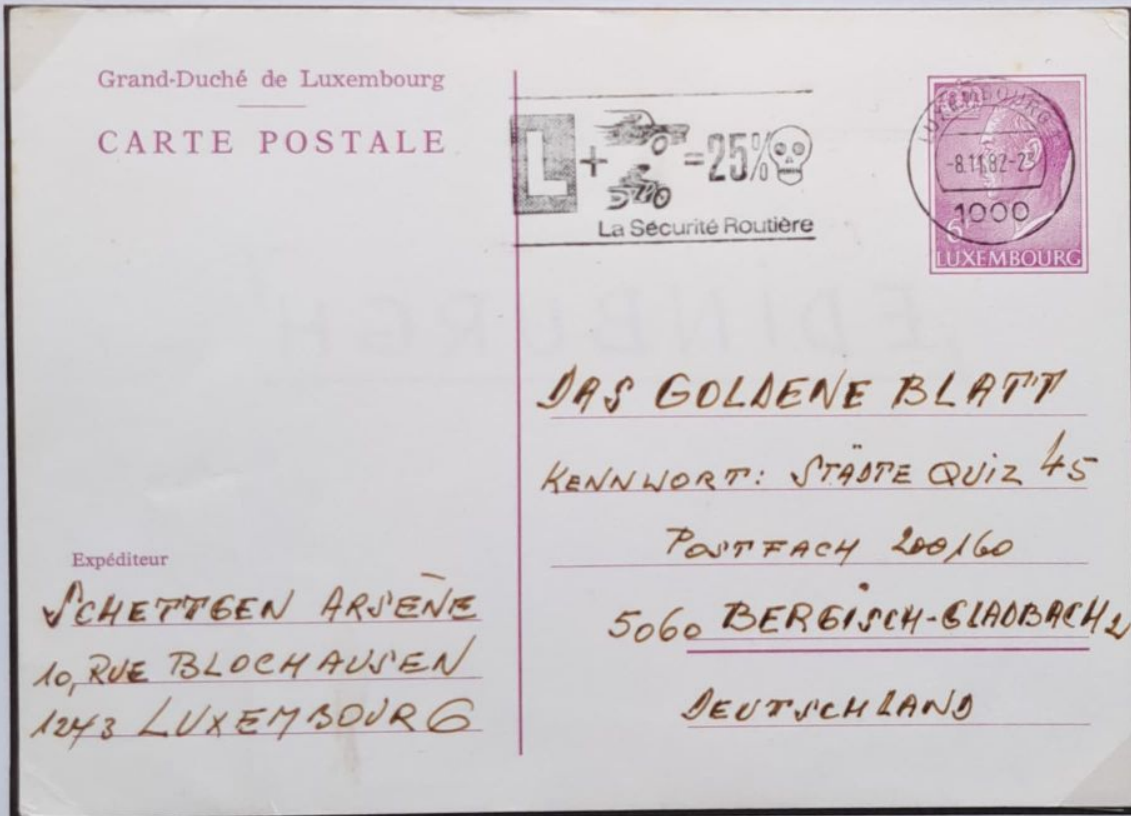 Grand-Duché de Luxembourg
CARTE POSTALE
L + = 25%
La Sécurité Routière
LUXEMBOURG
-8.11.82-23
1000
6F
LUXEMBOURG
EDINBURGH
DAS GOLDENE BLATT
KENNWORT: STÄDTE QUIZ 45
POSTFACH 200160
5060 BERGISCH-GLADBACH 2
DEUTSCHLAND
Expéditeur
SCHETTGEN ARSÈNE
10, RUE BLOCHAUSEN
1243 LUXEMBOURG